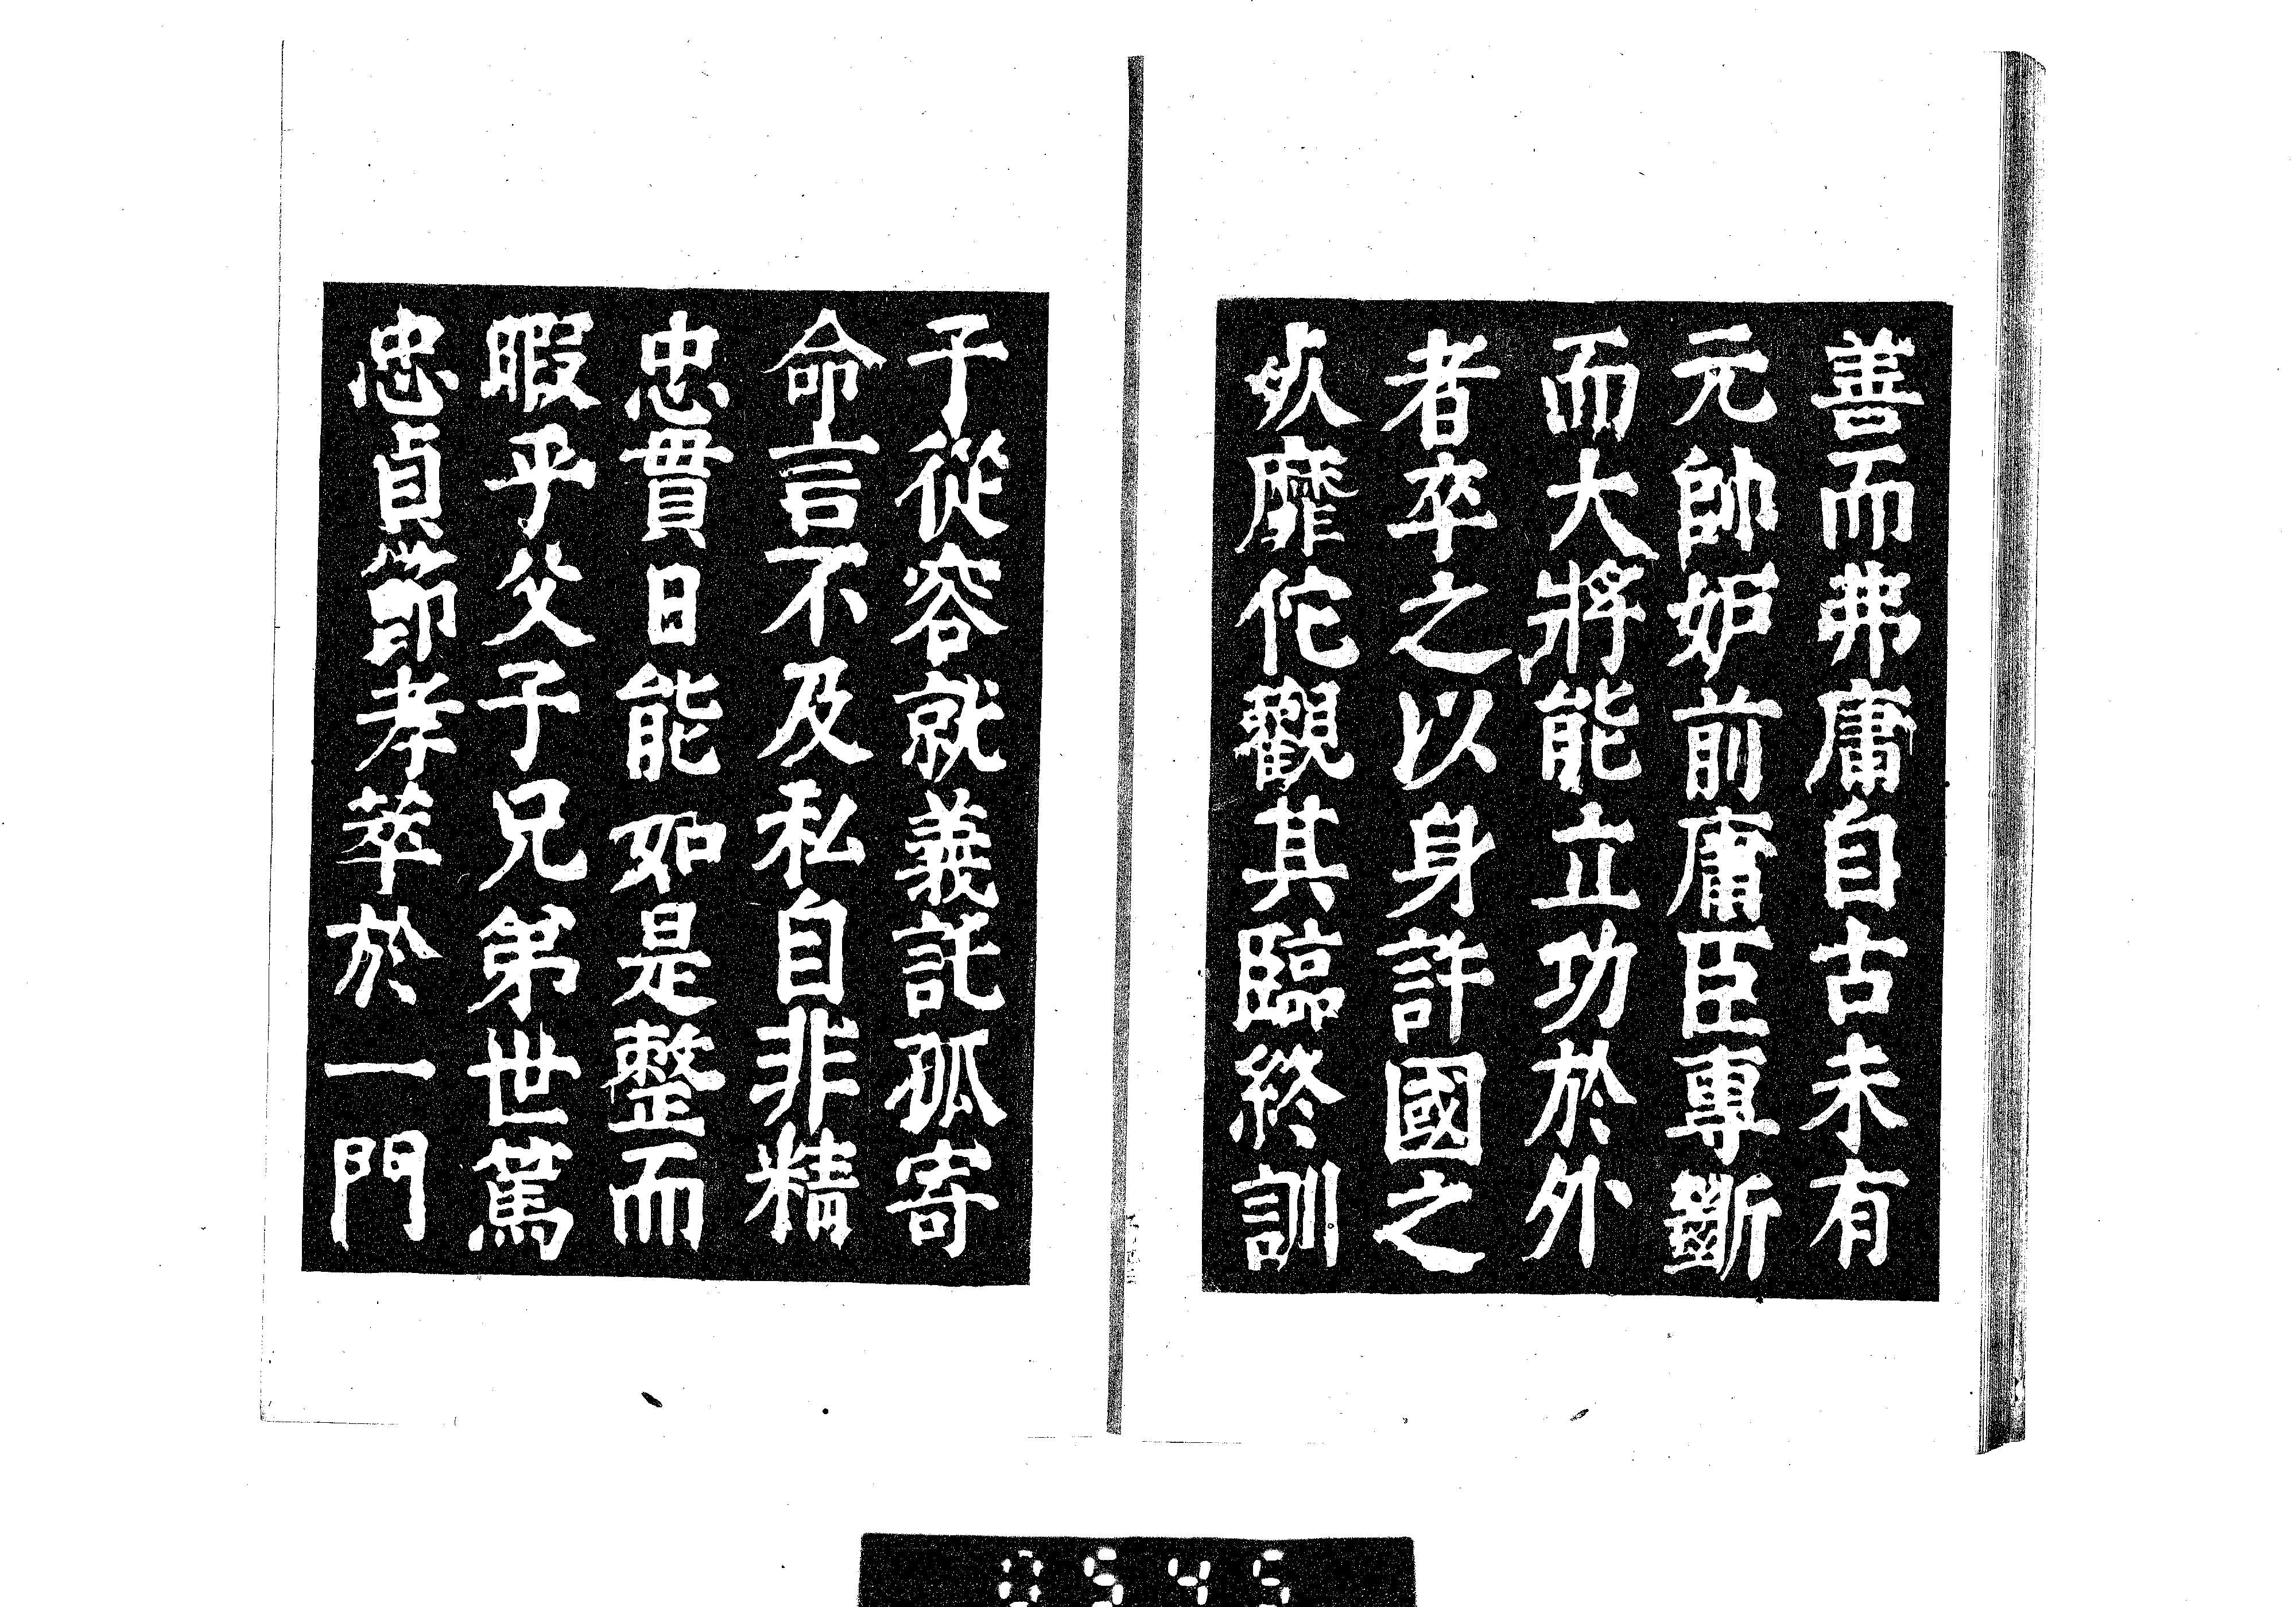 善而弗庸自古未有
元帥妒前庸臣專斷
而大將能立功於外
者卒之以身許國之
死靡佗觀其臨終訓
子從容就義託孤寄
命言不及私自非精
忠貫日能如是整而
暇乎父子兄弟世篤
忠貞節孝萃於一門
0545